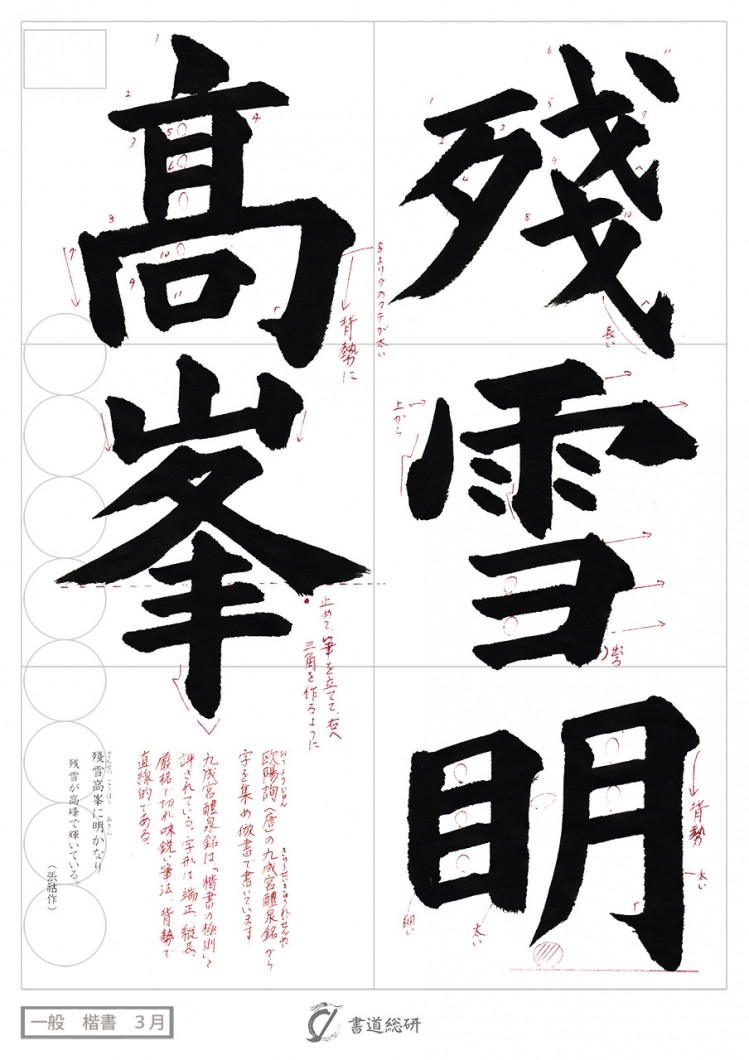 殘雪眀
髙峯
長い
背勢に
上から
出る
止めて、筆を立てて、右へ
三角を作るように
背勢
太い
太い
細い
欧陽詢（唐）の九成宮醴泉銘から
字を集め倣書で書いています
九成宮醴泉銘は「楷書の極則」と
評されている。字形は端正、縦長、
厳格で切れ味鋭い筆法、背勢で
直線的である。
殘雪高峯に明かなり
残雪が高峰で輝いている。
（張祜作）
一般 楷書 3月
書道総研